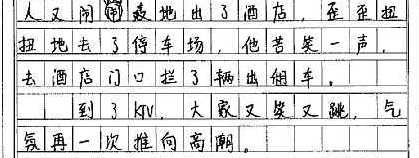 人又闹闹轰地出了酒店，歪歪扭
扭地去了停车场，他苦笑一声，
去酒店门口拦了辆出租车。
到了KTV，大家又笑又跳，气
氛再一次推向高潮。